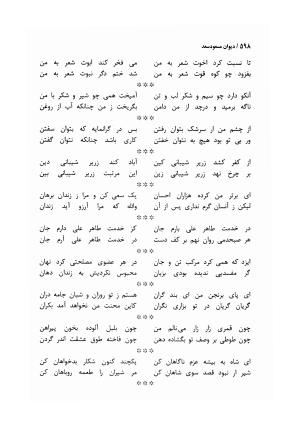 ۵۹۸ / دیوان مسعودسعد
تا نسبت کرد اخوت شعر به من می فخر کند ابوت شعر به من
بفزود چو کوه قوت شعر به من شد ختم دگر نبوت شعر به من
***
آنکو دارد چو سیم و شکر لب و تن آمیخت همی چو شیر و شکر با من
ناگه برمید و درچد از من دامن بگریخت ز من چنانکه آب از روغن
***
از چشم من از سرشک بتوان رفتن بس در گرانمایه که بتوان سفتن
ور بی تو بود هیچ به نتوان خفتن کاری باشد چنانکه نتوان گفتن
***
از کفر کشد زریر شیبانی کین آباد کند زریر شیبانی دین
بر چرخ نهد زریر شیبانی زین این مرتبت زریر شیبانی بین
***
ای برتر من کرده هزاران احسان یک سعی کن و مرا ز زندان برهان
لیکن ز آسان گرم نداری پس از آن والله که مرا آرزو آید زندان
***
در خدمت طاهر علی بارم جان کز خدمت طاهر علی دارم جان
هر صبحدمی روان نهم بر کف دست در خدمت طاهر علی آرم جان
***
ایزد که همی کرد مرکب تن و جان در هر عضوی مصلحتی کرد نهان
گر مفسدیی ندیده بودی بزبان محبوس نکردیش به زندان دهان
***
ای پای برنجن من ای بند گران هستم ز تو روزان و شبان جامه دران
گریان گریان در تو بزاری نگران کاین محنت من نخواهد آمد بکران
***
چون قمری زار زار می‌نالم من چون بلبل آلوده بخون پیراهن
چون طوطی بر وصف تو بگشاده دهن چون فاخته طوق عشقت اندر گردن
***
ای شاه به بیشه عزم ناگاهان کن یکچند کنون شکار بدخواهان کن
شیر از نبود قصد سوی شاهان کن مر شیران را طعمه روباهان کن
***